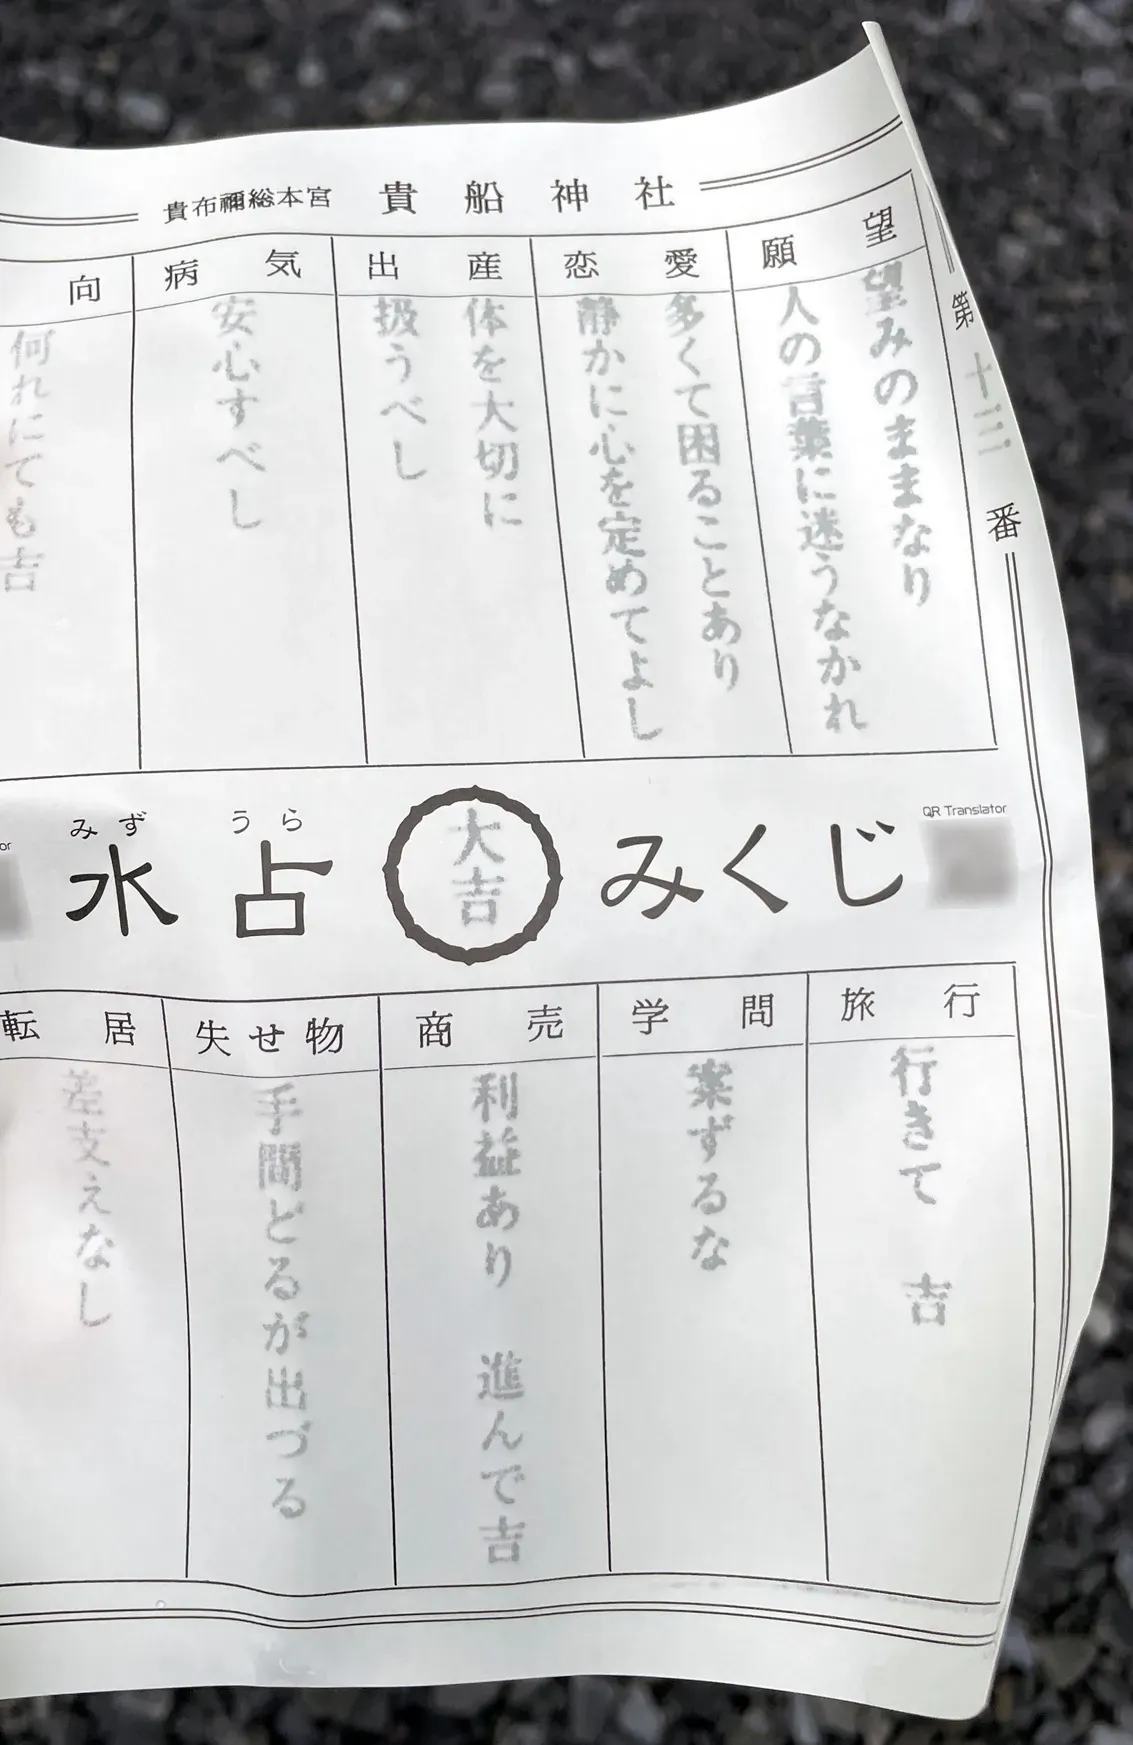 貴布禰総本宮 貴船神社
第十三番
願望
望みのままなり
人の言葉に迷うなかれ
恋愛
多くて困ることあり
静かに心を定めてよし
出産
体を大切に
扱うべし
病気
安心すべし
向
何れにても吉
QR Translator
みくじ
大吉
みずうら
水占
or
旅行
行きて 吉
学問
案ずるな
商売
利益あり 進んで吉
失せ物
手間どるが出づる
転居
差支えなし